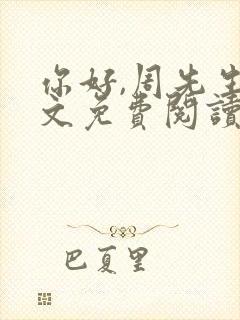 你好,周先生
文免費閱讀
巴夏里